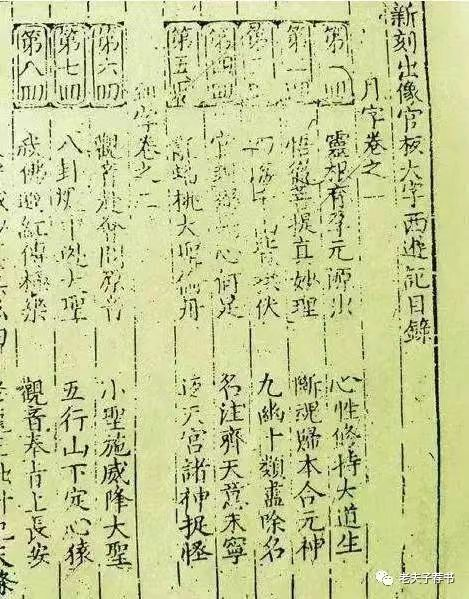 新刻出像官板大字西遊記目錄
月字卷之一
第一回 靈根育孕元源出 心性修持大道生
第 回 悟徹菩提真妙理 斷魂歸本合元神
四海 皆拱伏 九幽十類盡除名
第四回 官 心何足 名注齊天意未寧
第五回 蟠桃大聖偷丹 天宮諸神捉怪
字卷之二
第六回 觀音赴會問原因 小聖施威降大聖
第七回 八卦 中逃大聖 五行山下定心猿
第八回 我佛造經傳極樂 觀音奉旨上長安
老夫子荐书